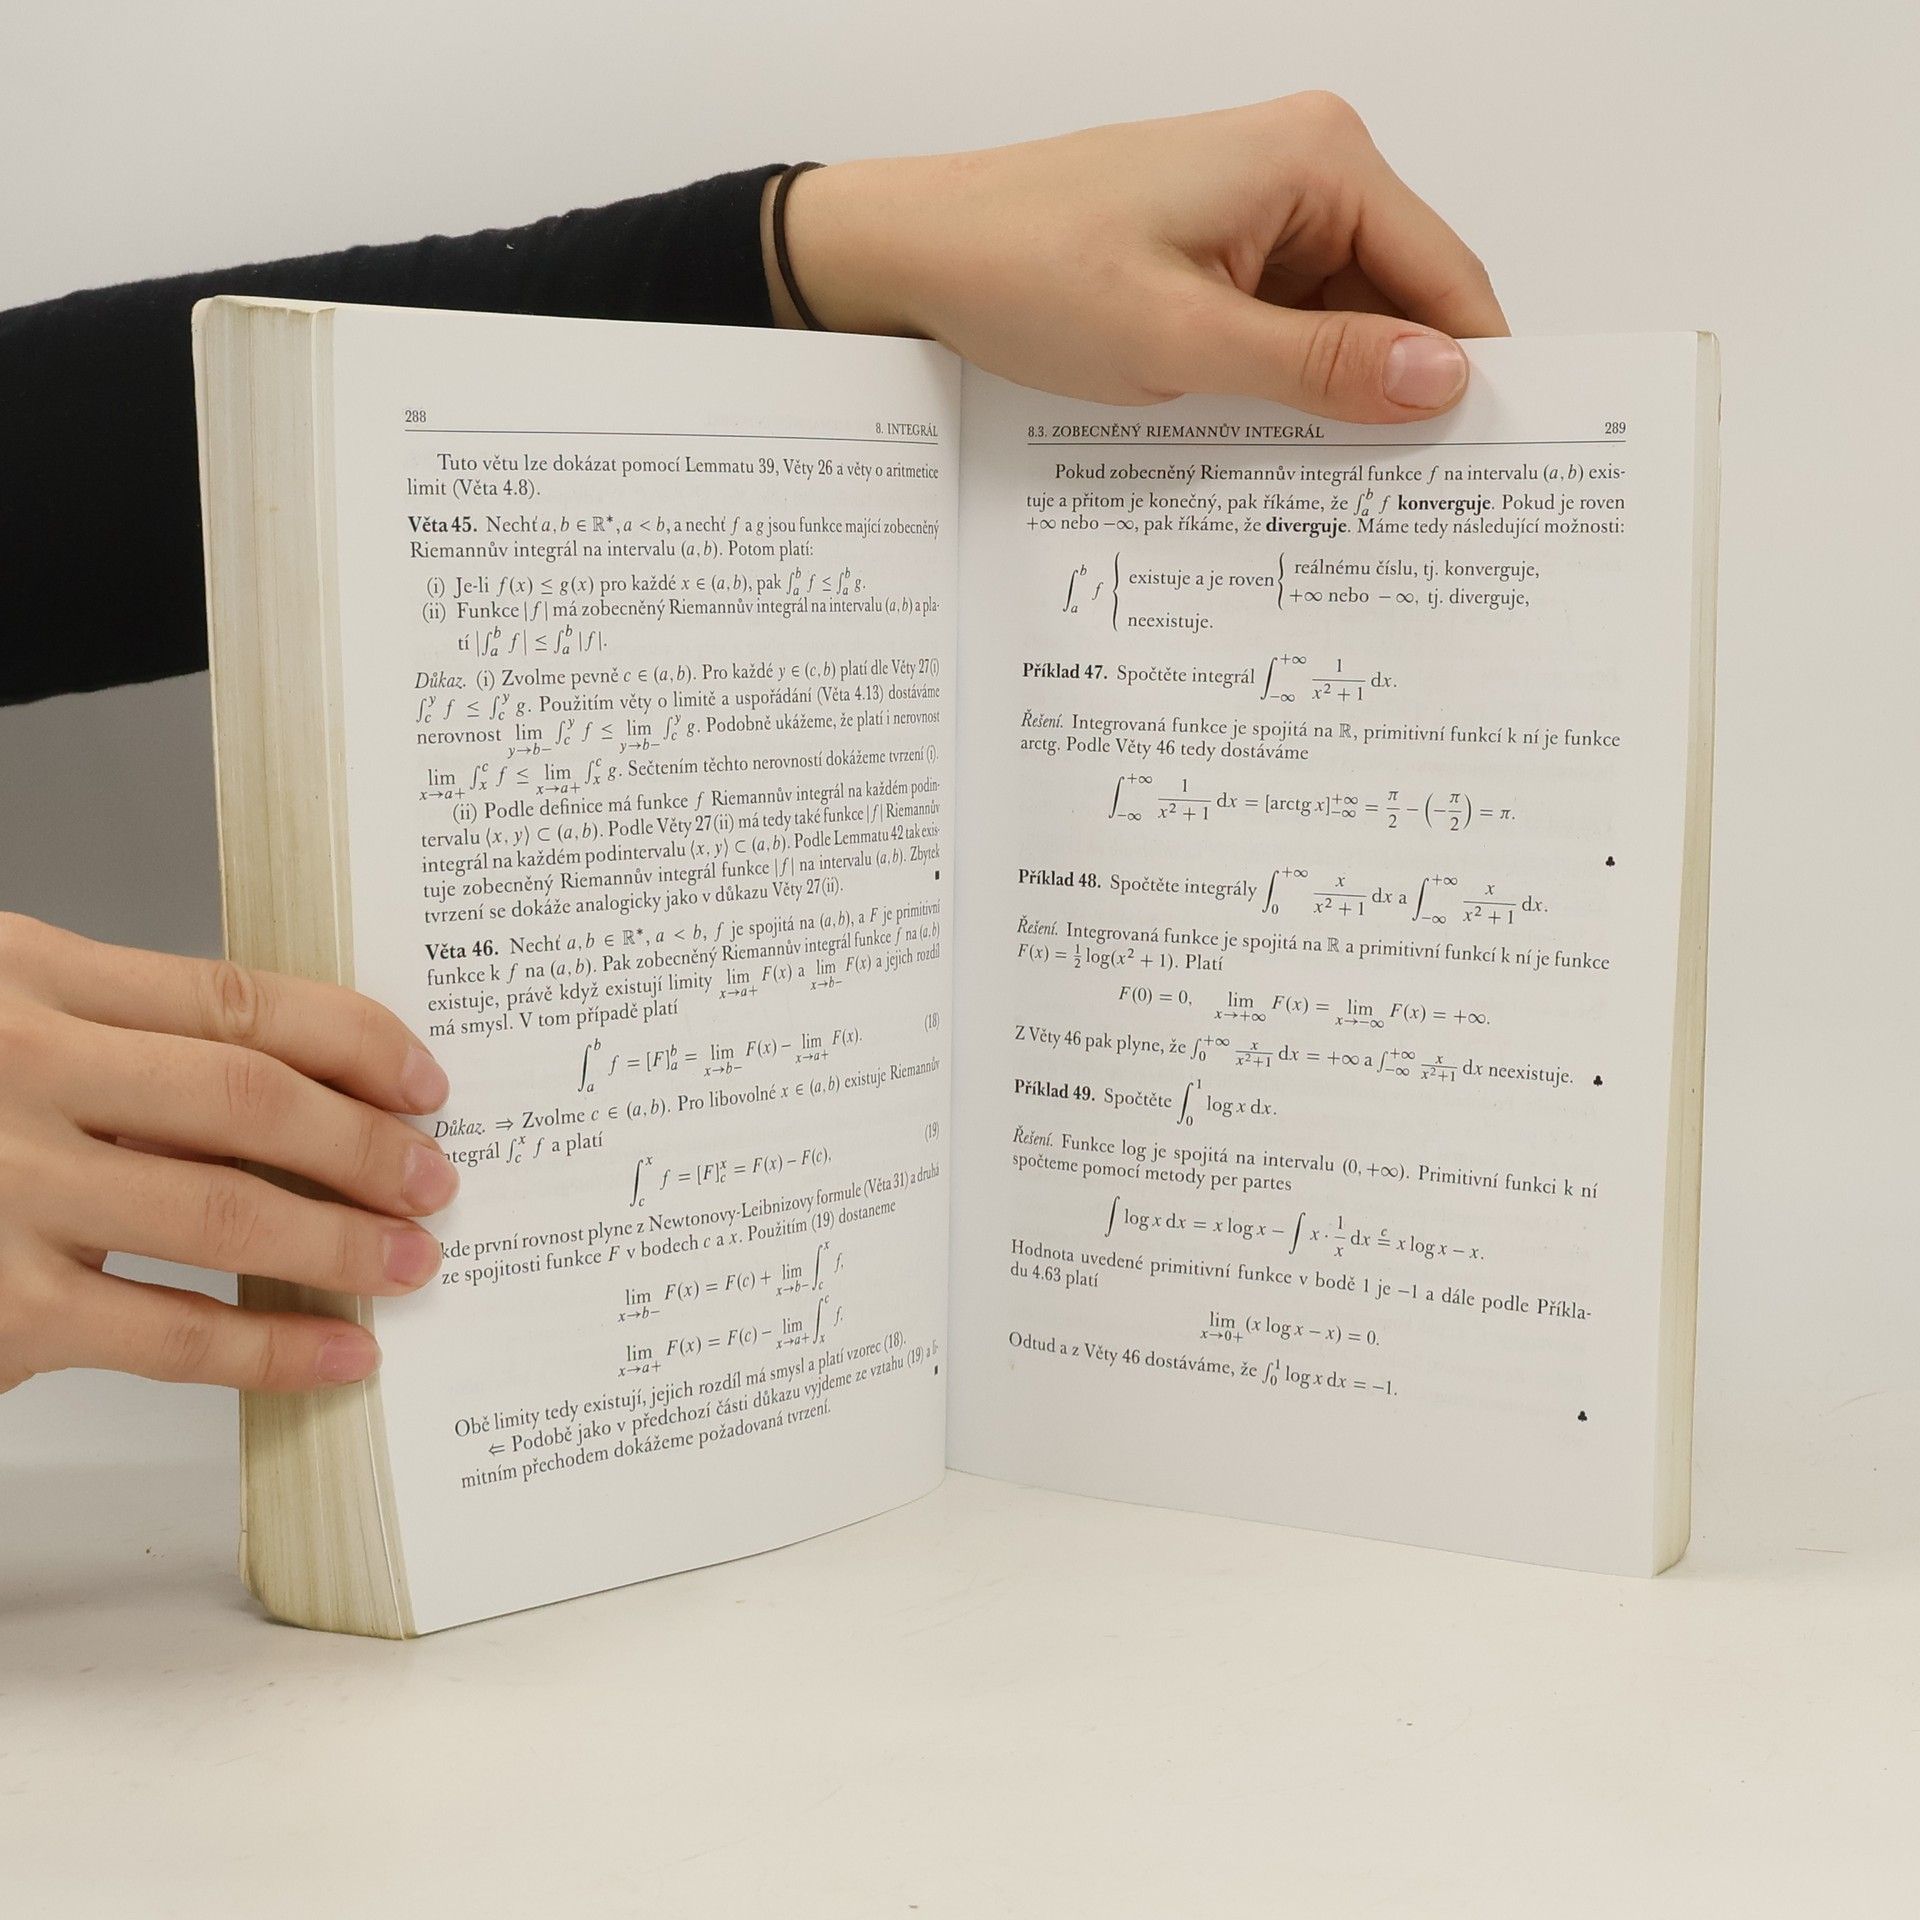 288
8. INTEGRÁL
Tuto větu lze dokázat pomocí Lemmatu 39, Věty 26 a věty o aritmetice
limit (Věta 4.8).
Věta 45. Nechť a, b ∈ ℝ*, a < b, a nechť f a g jsou funkce mající zobecněný
Riemannův integrál na intervalu (a, b). Potom platí:
(i) Je-li f(x) ≤ g(x) pro každé x ∈ (a, b), pak ∫_a^b f ≤ ∫_a^b g.
(ii) Funkce |f| má zobecněný Riemannův integrál na intervalu (a, b) a pla-
tí |∫_a^b f| ≤ ∫_a^b |f|.
Důkaz. (i) Zvolme pevně c ∈ (a, b). Pro každé y ∈ (c, b) platí dle Věty 27(i)
∫_c^y f ≤ ∫_c^y g. Použitím věty o limitě a uspořádání (Věta 4.13) dostáváme
nerovnost lim_{y→b−} ∫_c^y f ≤ lim_{y→b−} ∫_c^y g. Podobně ukážeme, že platí i nerovnost
lim_{x→a+} ∫_x^c f ≤ lim_{x→a+} ∫_x^c g. Sečtením těchto nerovností dokážeme tvrzení (i).
(ii) Podle definice má funkce f Riemannův integrál na každém podin-
tervalu ⟨x, y⟩ ⊂ (a, b). Podle Věty 27(ii) má tedy také funkce |f| Riemannův
integrál na každém podintervalu ⟨x, y⟩ ⊂ (a, b). Podle Lemmatu 42 tak exis-
tuje zobecněný Riemannův integrál funkce |f| na intervalu (a, b). Zbytek
tvrzení se dokáže analogicky jako v důkazu Věty 27(ii). ∎
Věta 46. Nechť a, b ∈ ℝ*, a < b, f je spojitá na (a, b), a F je primitivní
funkce k f na (a, b). Pak zobecněný Riemannův integrál funkce f na (a, b)
existuje, právě když existují limity lim_{x→a+} F(x) a lim_{x→b−} F(x) a jejich rozdíl
má smysl. V tom případě platí
∫_a^b f = [F]_a^b = lim_{x→b−} F(x) − lim_{x→a+} F(x). (18)
Důkaz. ⇒ Zvolme c ∈ (a, b). Pro libovolné x ∈ (a, b) existuje Riemannův
ntegrál ∫_c^x f a platí
∫_c^x f = [F]_c^x = F(x) − F(c), (19)
kde první rovnost plyne z Newtonovy-Leibnizovy formule (Věta 31) a druhá
ze spojitosti funkce F v bodech c a x. Použitím (19) dostaneme
lim_{x→b−} F(x) = F(c) + lim_{x→b−} ∫_c^x f,
lim_{x→a+} F(x) = F(c) − lim_{x→a+} ∫_x^c f.
Obě limity tedy existují, jejich rozdíl má smysl a platí vzorec (18).
⇐ Podobě jako v předchozí části důkazu vyjdeme ze vztahu (19) a li-
mitním přechodem dokážeme požadovaná tvrzení. ∎
8.3. ZOBECNĚNÝ RIEMANNŮV INTEGRÁL
289
Pokud zobecněný Riemannův integrál funkce f na intervalu (a, b) exis-
tuje a přitom je konečný, pak říkáme, že ∫_a^b f konverguje. Pokud je roven
+∞ nebo −∞, pak říkáme, že diverguje. Máme tedy následující možnosti:
∫_a^b f { existuje a je roven { reálnému číslu, tj. konverguje,
+∞ nebo −∞, tj. diverguje,
neexistuje.
Příklad 47. Spočtěte integrál ∫_{−∞}^{+∞} 1/(x² + 1) dx.
Řešení. Integrovaná funkce je spojitá na ℝ, primitivní funkcí k ní je funkce
arctg. Podle Věty 46 tedy dostáváme
∫_{−∞}^{+∞} 1/(x² + 1) dx = [arctg x]_{−∞}^{+∞} = π/2 − (−π/2) = π.
♣
Příklad 48. Spočtěte integrály ∫_0^{+∞} x/(x² + 1) dx a ∫_{−∞}^{+∞} x/(x² + 1) dx.
Řešení. Integrovaná funkce je spojitá na ℝ a primitivní funkcí k ní je funkce
F(x) = ½ log(x² + 1). Platí
F(0) = 0, lim_{x→+∞} F(x) = lim_{x→−∞} F(x) = +∞.
Z Věty 46 pak plyne, že ∫_0^{+∞} x/(x²+1) dx = +∞ a ∫_{−∞}^{+∞} x/(x²+1) dx neexistuje. ♣
Příklad 49. Spočtěte ∫_0^1 log x dx.
Řešení. Funkce log je spojitá na intervalu (0, +∞). Primitivní funkci k ní
spočteme pomocí metody per partes
∫ log x dx = x log x − ∫ x · 1/x dx =^c x log x − x.
Hodnota uvedené primitivní funkce v bodě 1 je −1 a dále podle Příkla-
du 4.63 platí
lim_{x→0+} (x log x − x) = 0.
Odtud a z Věty 46 dostáváme, že ∫_0^1 log x dx = −1.
♣